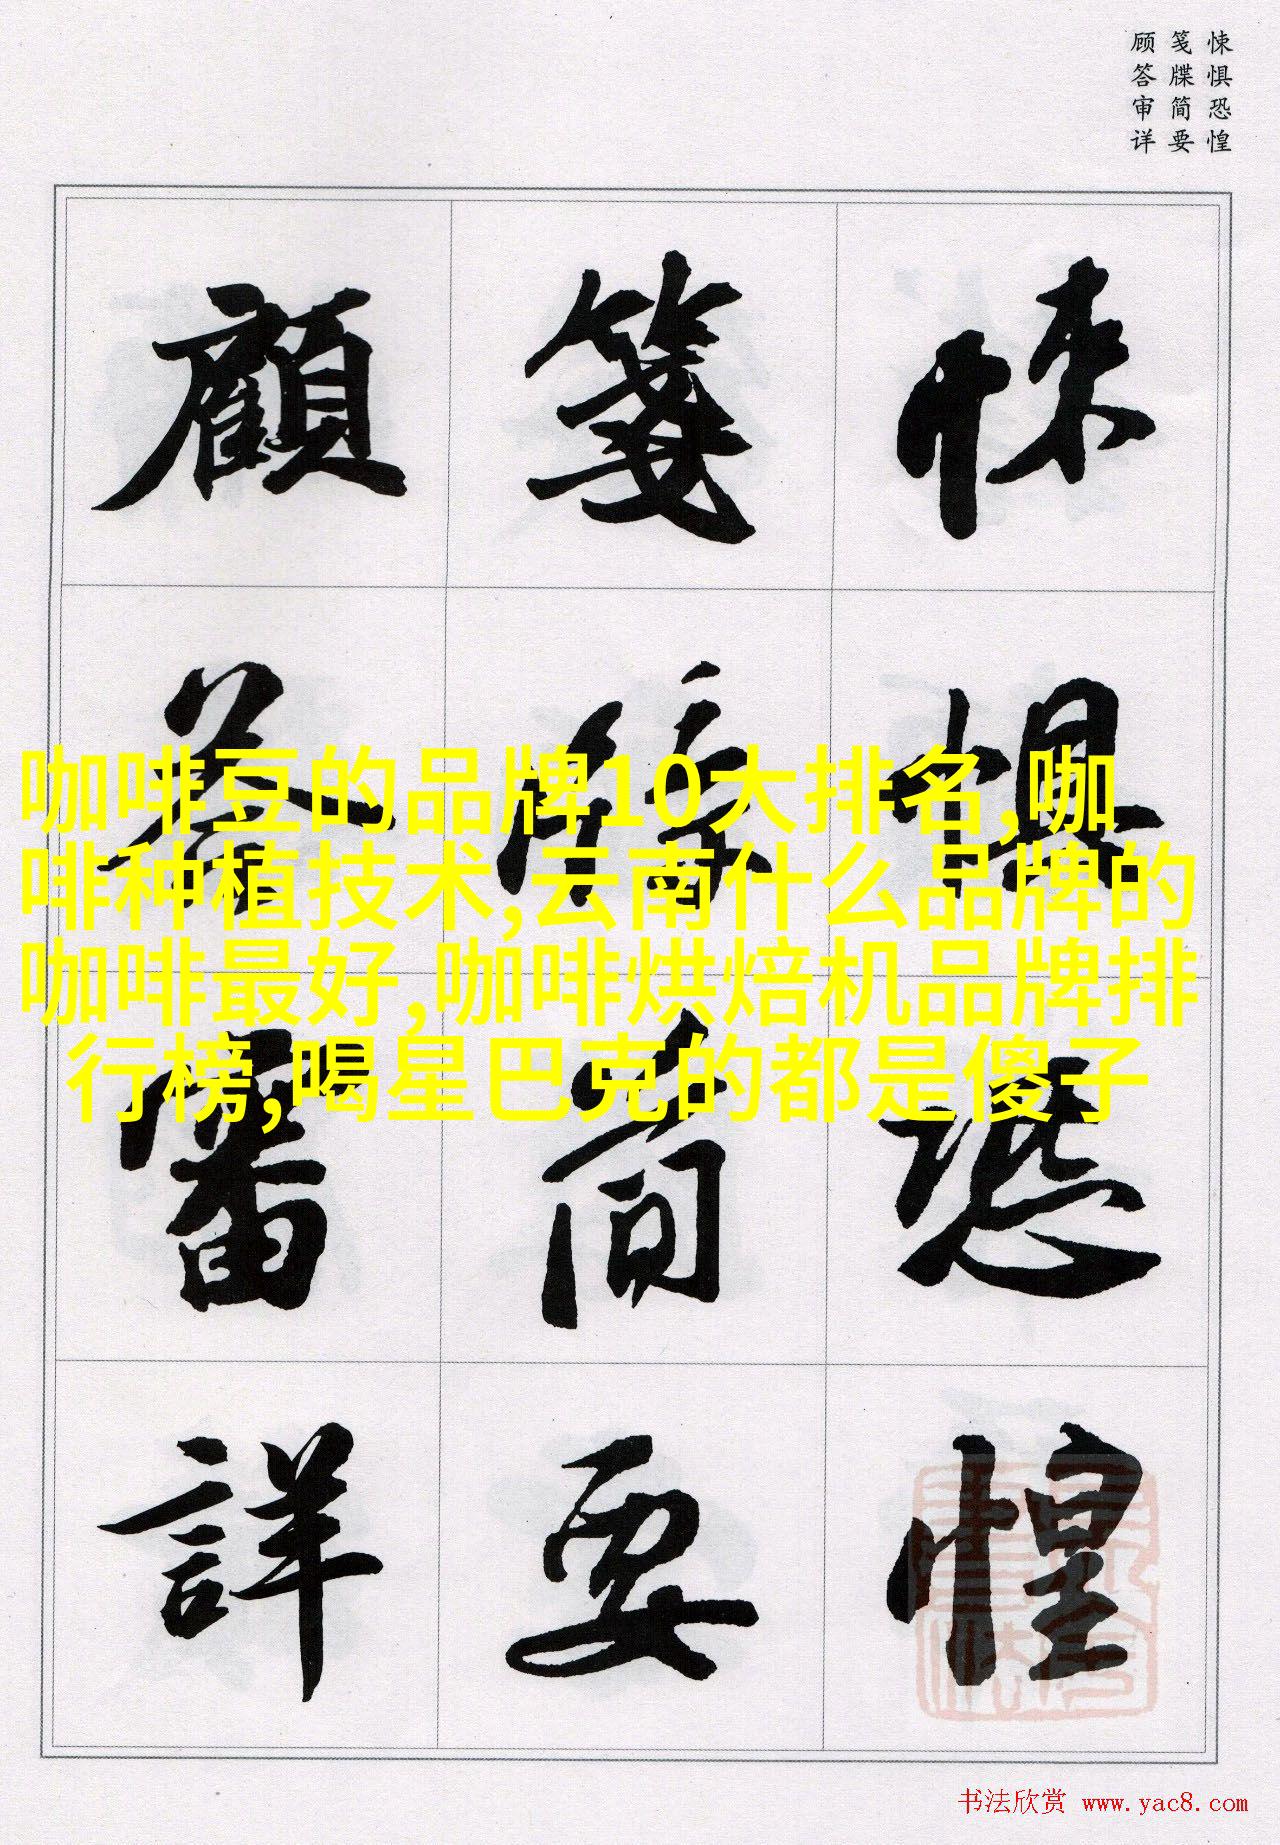 悚惧恐惶
笺牒简要
顾答审详
悚懼恐惶
箋牒简要
顧答審詳
咖啡豆的品牌10大排名,咖
啡种植技术,云南什么品牌的
咖啡最好,咖啡烘焙机品牌排
行榜,喝星巴克的都是傻子
书法欣赏 www.yac8.com